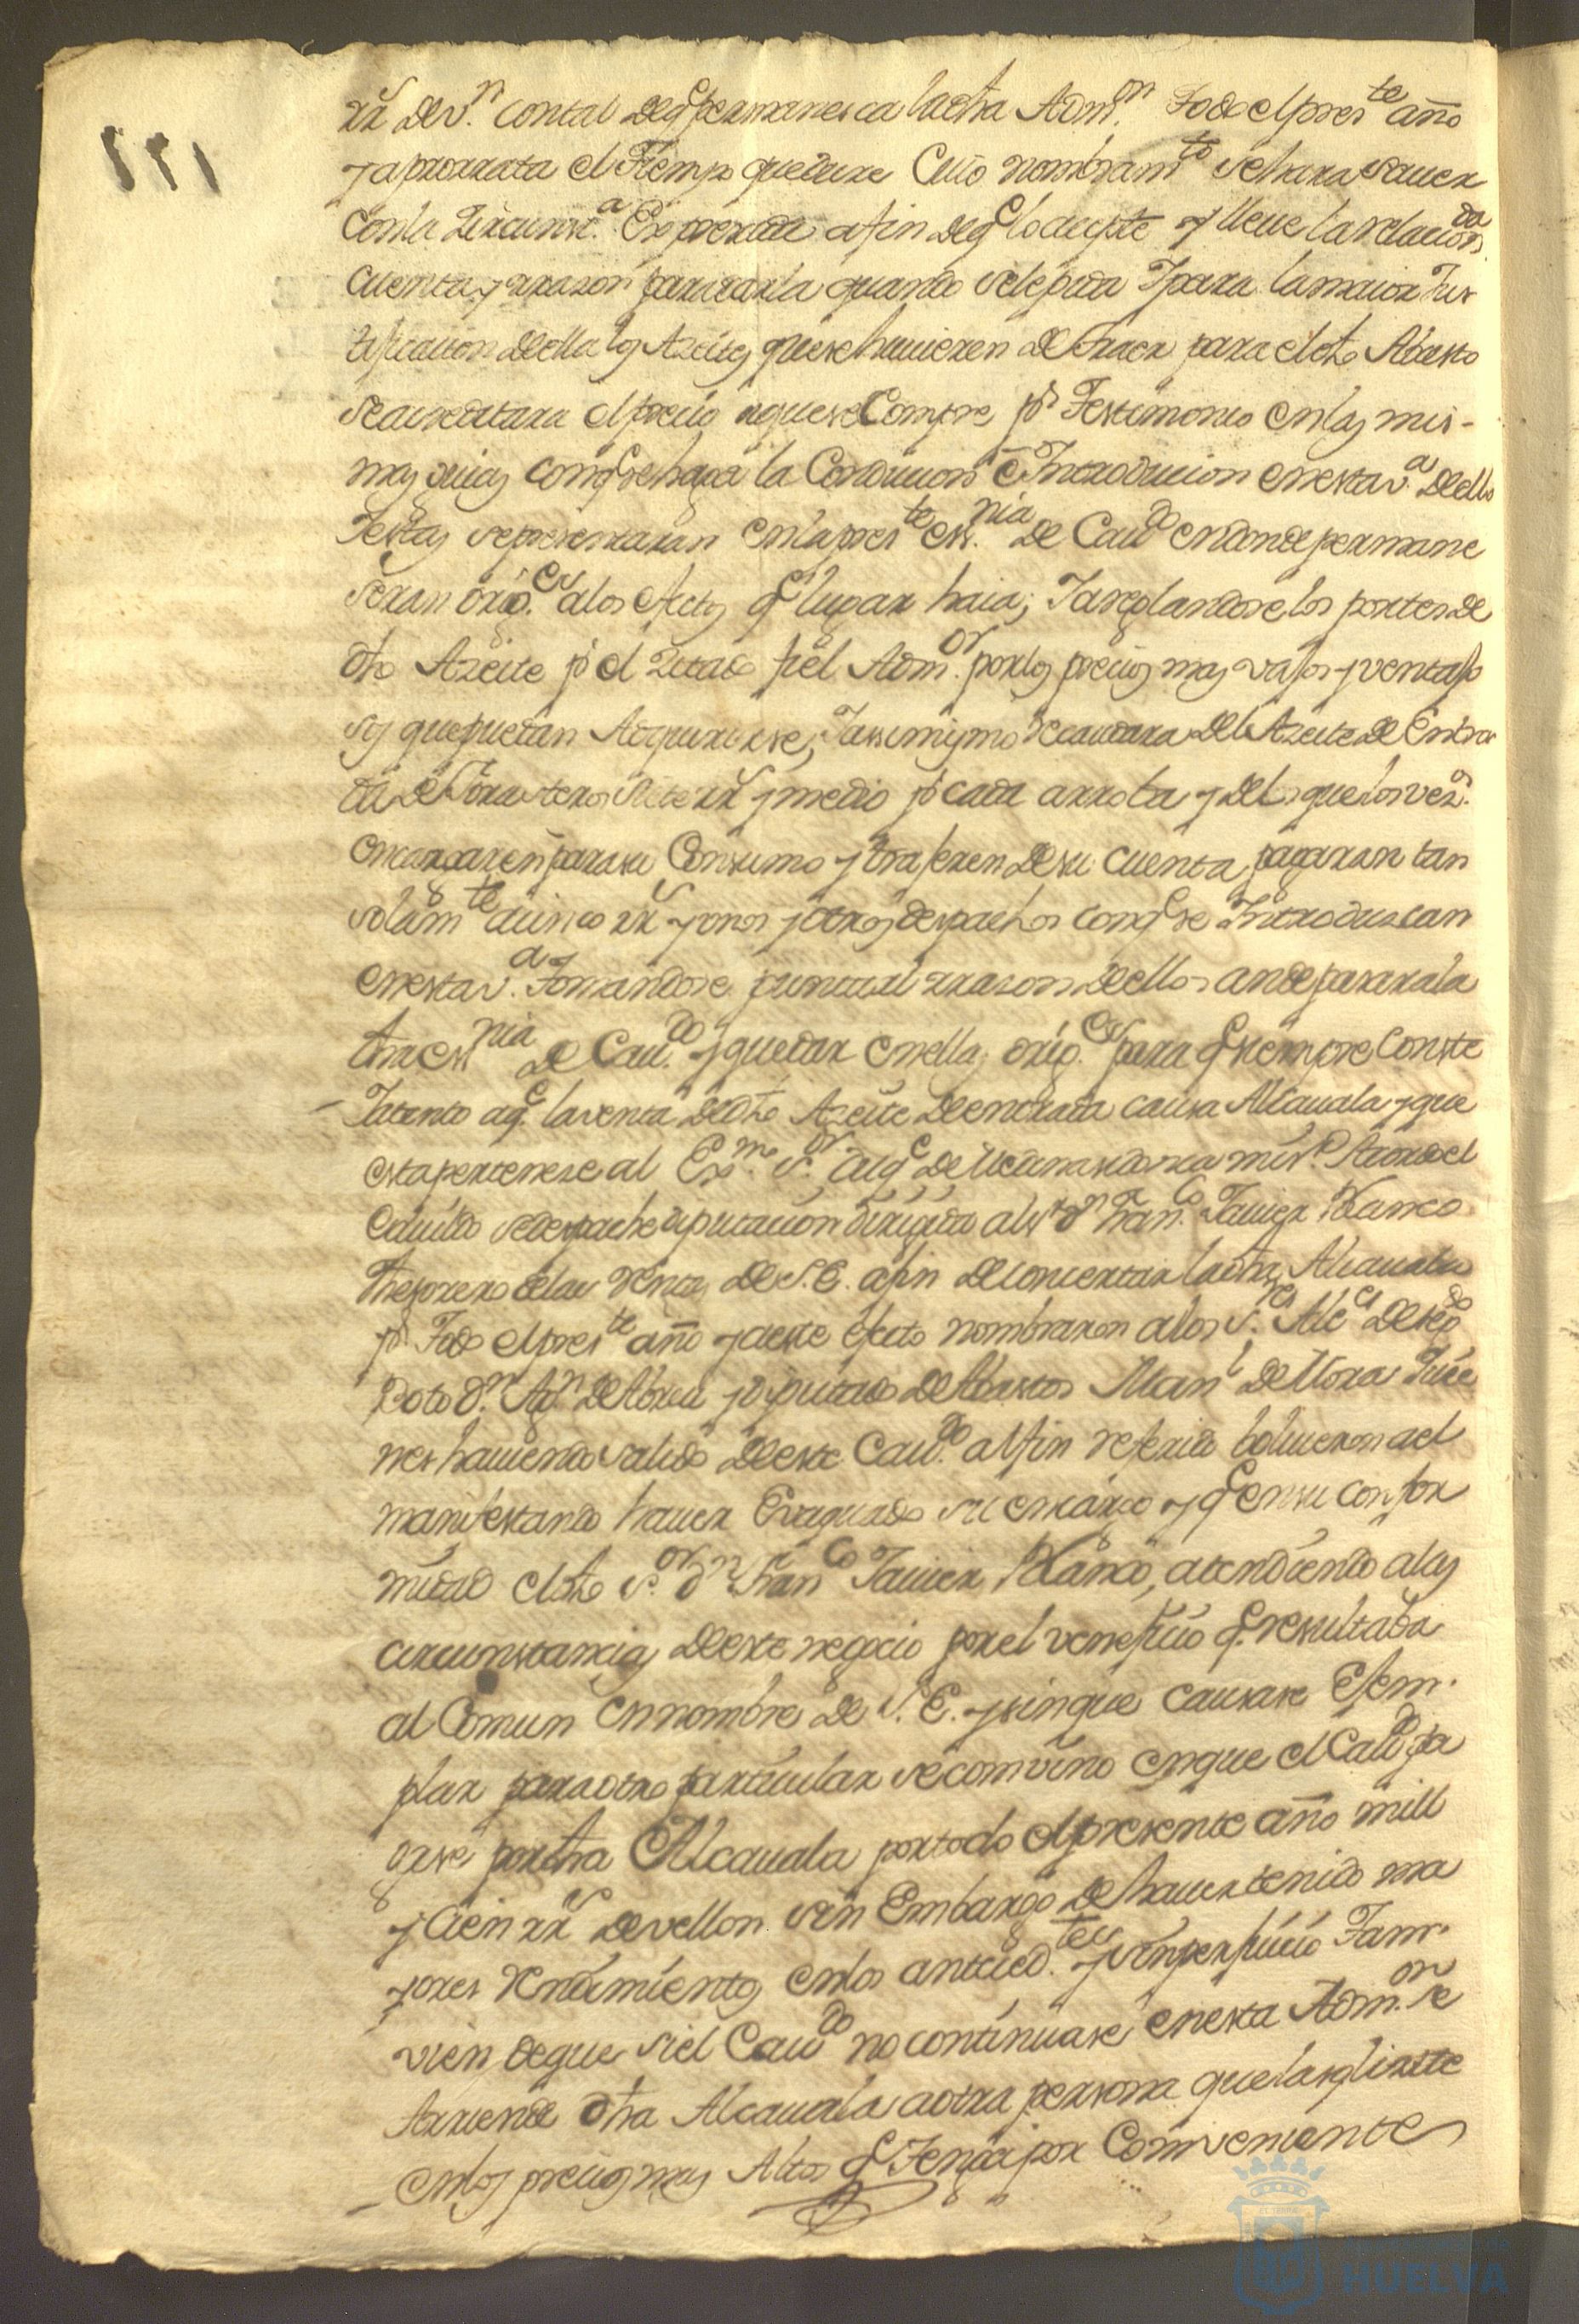 rr.s de v.n con tal de q.e permanesca la dha Adm.on todo el pres.te año
y a prorrata el tiempo que dure Cuio nombram.to se hara sauer
con la Zircunst.a Expresada a fin de q.e lo acepte y lleue la relacion
cuenta y rrazon para darla quando se le pida Y para la maior Jus
tificacion de ella los Azeites que se huuieren de traer para el dho Abasto
se acreditara el precio a que se Compre p.r Testimonio en las mis-
mas guias con q.e se haga la Conduccion e Introducion en esta v.a de ello
Y estas se presentaran en la pres.te ess.nia de Cau.do en donde permane
seran orig.es a los efectos q.e lugar haia; Y areglandose los portes de
dho Azeite p.r el Zitado fiel Adm.or por los precios mas vajos y ventajo
sos que puedan Adquirirse; Y assimismo recaudara del Azeite de Entra
da de forasteros siete rr.s y medio p.r cada arroba y de los que los vez.s
encargaren para su Consumo y trajeren de su cuenta pagaran tan
solam.te a cinco rr.s y unos y otros despachos con q.e se Introduscan
en esta v.a Tomandose puntual rrason de ellos an de parar a la
dha ess.nia de Cau.do y quedar en ella orig.es para q.e siempre Conste
- Y atento a q.e la venta de dho Azeite de entrada causa Alcauala y que
esta pertenese al Ex.mo s.or Duq.e de Medinasidonia mi s.r Acordo el
Cauildo se despache diputacion dirigida al s.r d.n Fran.co Jauier Blanco
thesorero de las Rentas de S. E. a fin de concertar la dha Alcauala
p.r Todo el pres.te año y a este efecto nombraron a los s.res Alc.es de seg.do
Voto d.n Ag.n de Abreu y diputado de Abastos Man.l de Mora Quie
nes hauiendo salido de este Cau.do al fin referido boluieron a el
manifestando hauer Evaquado su encargo y q.e en su confor
midad el dho s.or d.n Fran.co Jauier Blanco, atendiendo a las
circunstancias de este negocio por el veneficio q.e resultaba
al Comun en nombre de S. E. y sin que causase Ejem-
plar para otro particular se convino en que el Cau.do pa
gase por dha Alcauala por todo el presente año mill
y Cien rr.s de vellon sin Embargo de hauer tenido ma
yores Rendimientos en los anteced.tes y sin perjuicio Tam-
vien de que si el Cau.do no continuase en esta Adm.on se
Arriende dha Alcauala a otra persona que la solicite
- en los precios mas Altos q.e Tenga por Conveniente